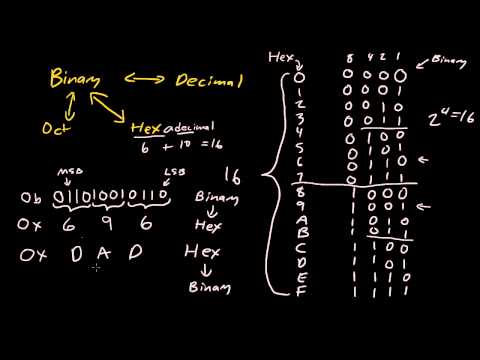 Binary ↔ Decimal
Oct
Hexadecimal
6 + 10 = 16
MSB LSB
0b 011010010110 Binary
0x 6 9 6 Hex
0x D A D Hex
Binary
16
Hex 8 4 2 1 Binary
0 0 0 0 0
1 0 0 0 1
2 0 0 1 0
3 0 0 1 1
4 0 1 0 0
5 0 1 0 1
6 0 1 1 0
7 0 1 1 1
8 1 0 0 0
9 1 0 0 1
A 1 0 1 0
B 1 0 1 1
C 1 1 0 0
D 1 1 0 1
E 1 1 1 0
F 1 1 1 1
2^4=16